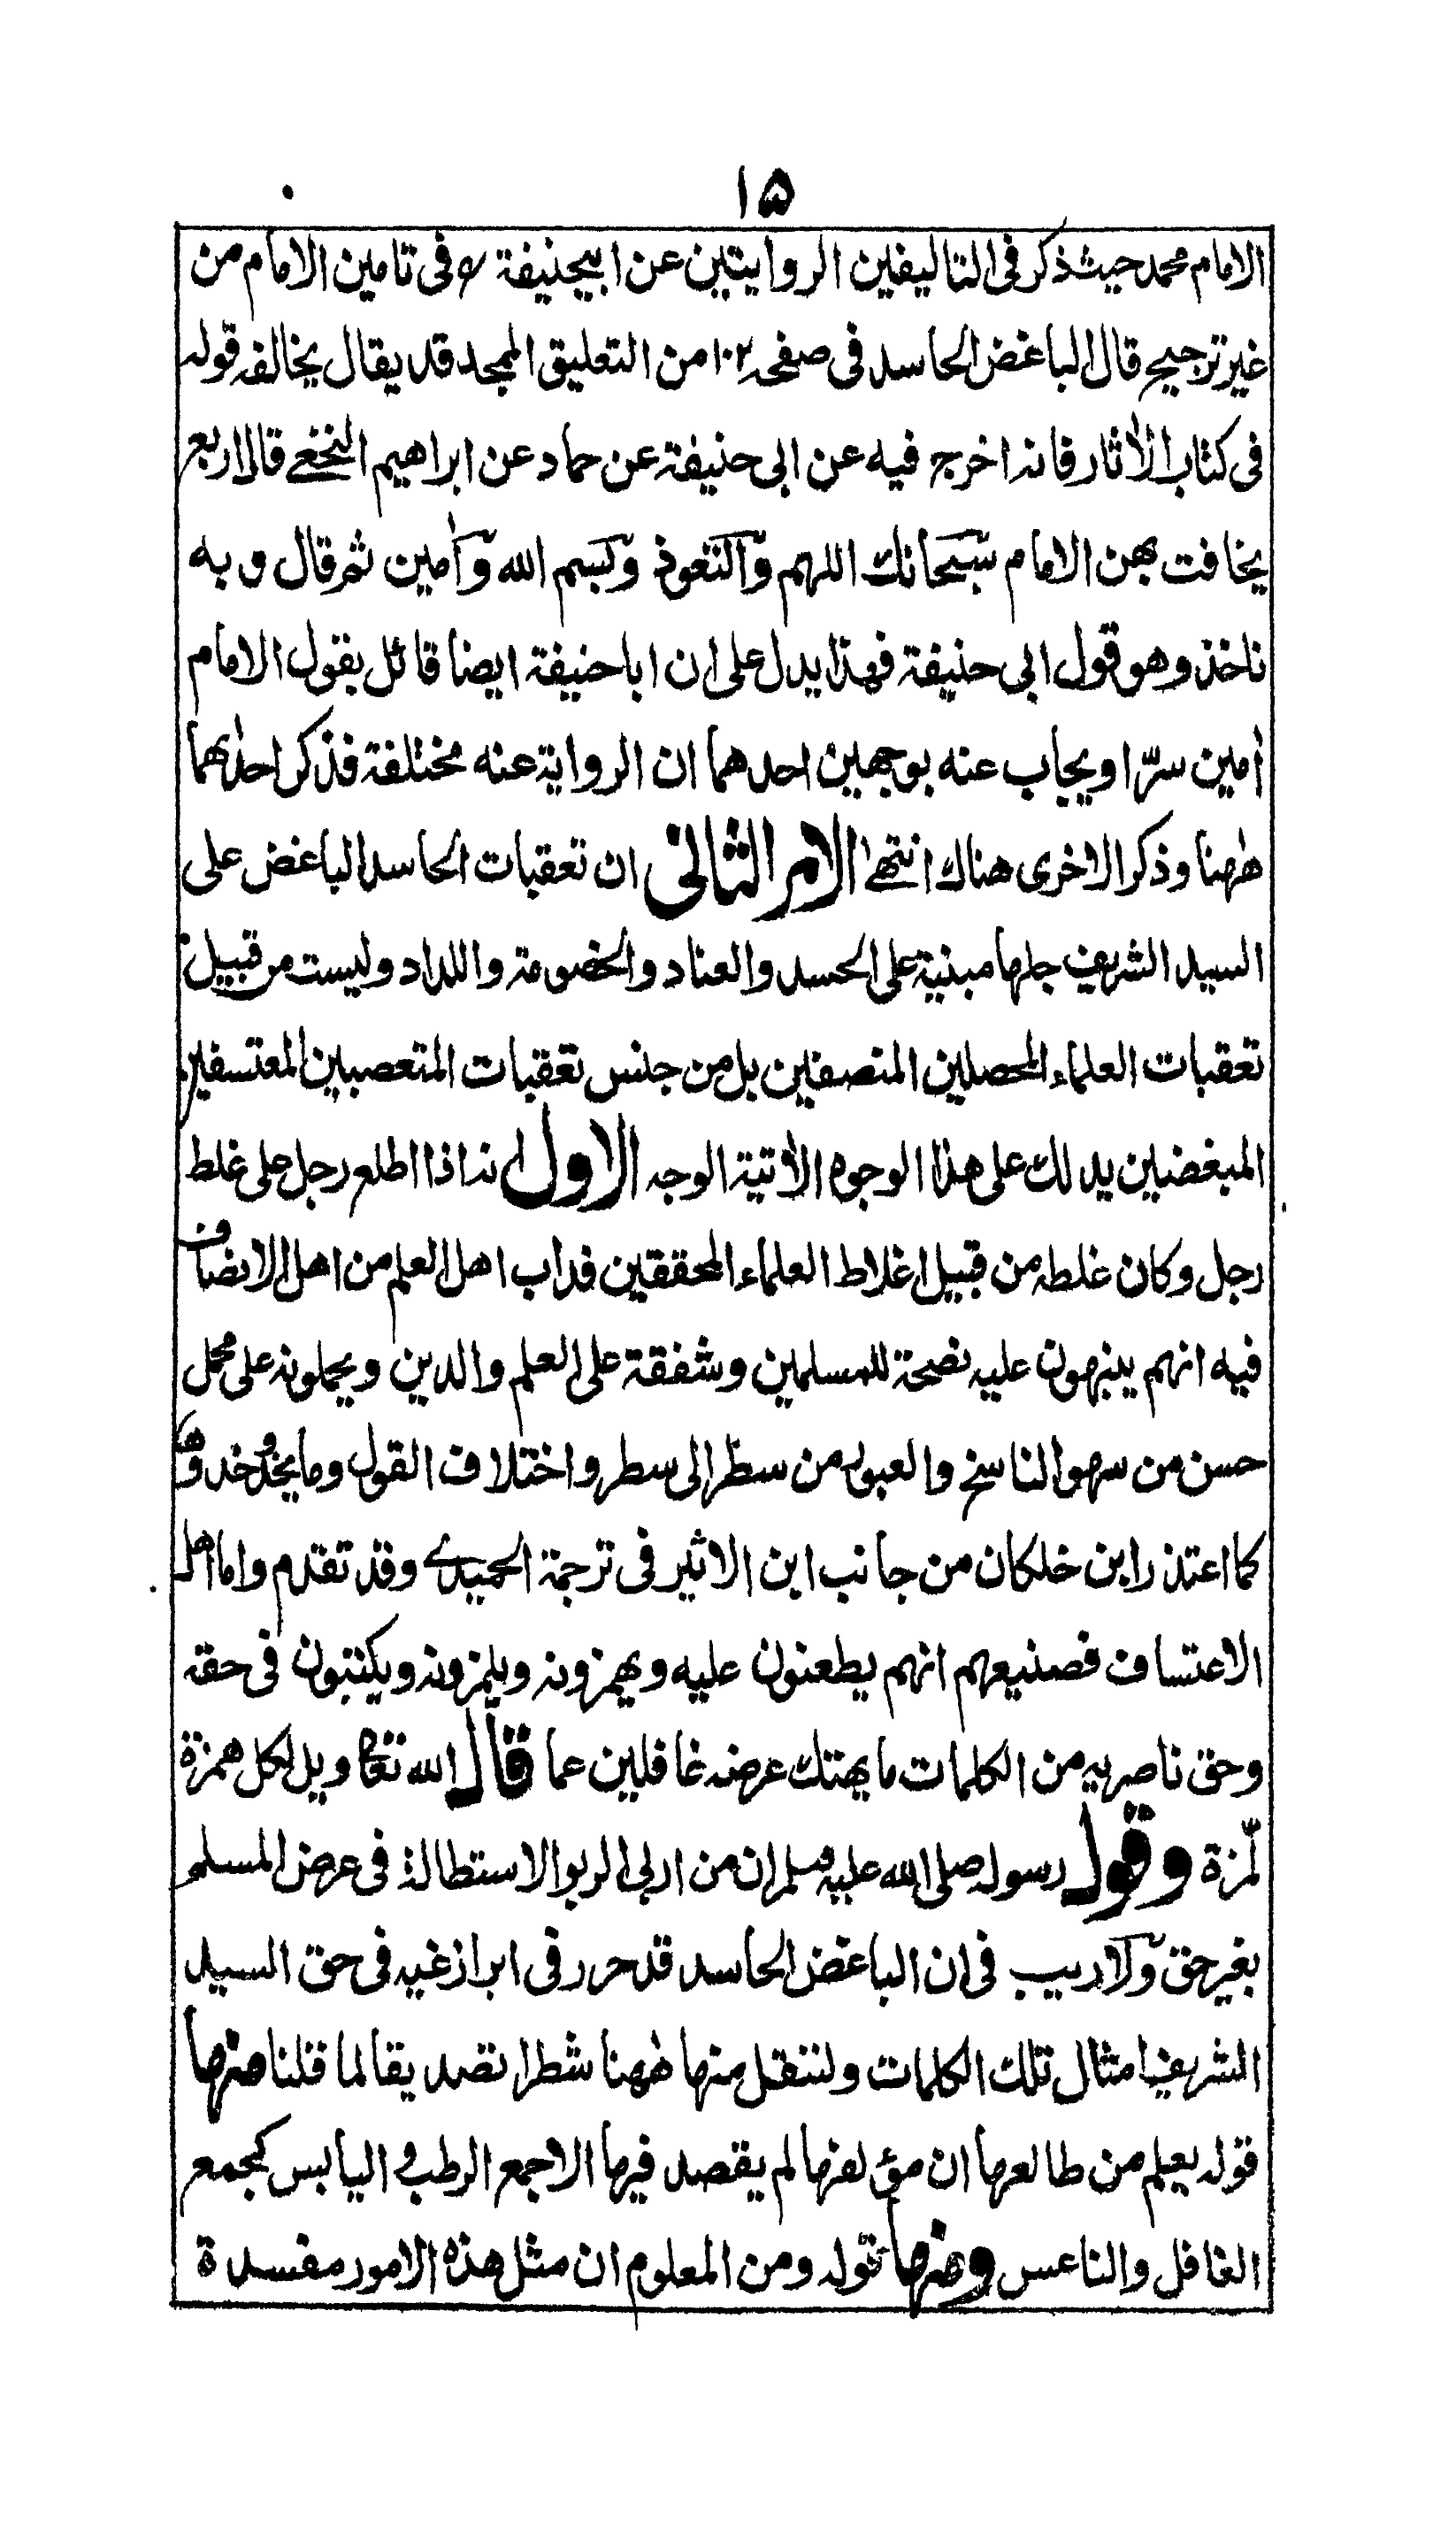 ۱۵
الامام محمد حیث ذکر فی التالیفین الروایتین عن ابیحنیفة رح فی تامین الامام من
غیر ترجیح قال الباغض الحاسد فی صفحه ۱۰۲ من التعلیق الممجد قد یقال یخالفه قوله
فی کتاب الاٰثار فانه اخرج فیه عن ابی حنیفة عن حماد عن ابراهیم النخعے قال اربع
یخافت بهن الامام سبحانك اللهم والتعوذ وبسم الله واٰمین ثم قال وبه
ناخذ وهو قول ابی حنیفة فهذا یدل علی ان اباحنیفة ایضا قائل بقول الامام
اٰمین سرّا ویجاب عنه بوجهین احدهما ان الروایة عنه مختلفة فذکر احدٰهما
هٰهنا وذکر الاخری هناك انتهےٰ الامر الثانی ان تعقبات الحاسد الباغض علی
السید الشریف جلها مبنیة علی الحسد والعناد والخصومة واللداد ولیست من قبیل
تعقبات العلماء المحصلین المنصفین بل من جنس تعقبات المتعصبین المعتسفین
المبغضین یدلك علی هذا الوجوه الاٰتیة الوجه الاول انه اذا اطلع رجل علی غلط
رجل وکان غلطه من قبیل اغلاط العلماء المحققین فداب اهل العلم من اهل الانصاف
فیه انهم ینبهون علیه نصحة للمسلمین وشفقة علی العلم والدین ویحملونه علی محمل
حسن من سهو الناسخ والعبور من سطر الی سطر واختلاف القول وما یحذو حذوه
کما اعتذر ابن خلکان من جانب ابن الاثیر فی ترجمة الحمیدے وقد تقدم واما اهل
الاعتساف فصنیعهم انهم یطعنون علیه ویهمزونه ویلمزونه ویکتبون فی حقه
وحق ناصریه من الکلمات ما یهتك عرضه غافلین عما قال الله تعالی ویل لکل همزة
لّمزة وقول رسوله صلی الله علیه وسلم ان من اربی الربو الاستطالة فی عرض المسلم
بغیر حق ولا ریب فی ان الباغض الحاسد قد حرر فی ابراز غیه فی حق السید
الشریف امثال تلك الکلمات ولننقل منها هٰهنا شطرا تصدیقا لما قلنا منها
قوله یعلم من طالعها ان مؤلفها لم یقصد فیها الا جمع الرطب و الیابس کجمع
الغافل والناعس ومنها قوله ومن المعلوم ان مثل هذه الامور مفسدة